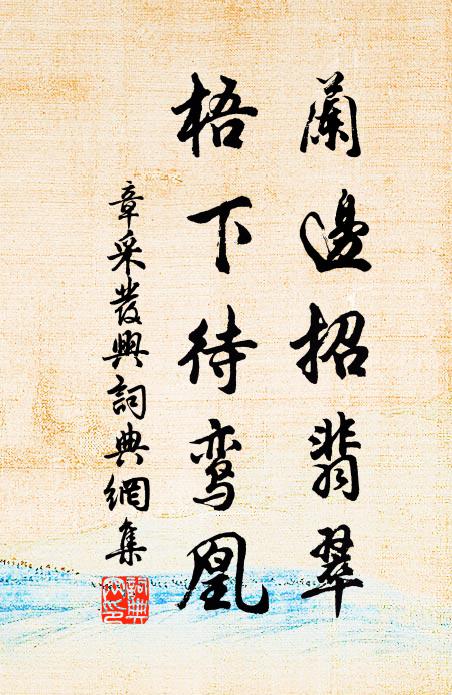 蘭邊招翡翠
梧下待鸾凰
章采發興詞典網集